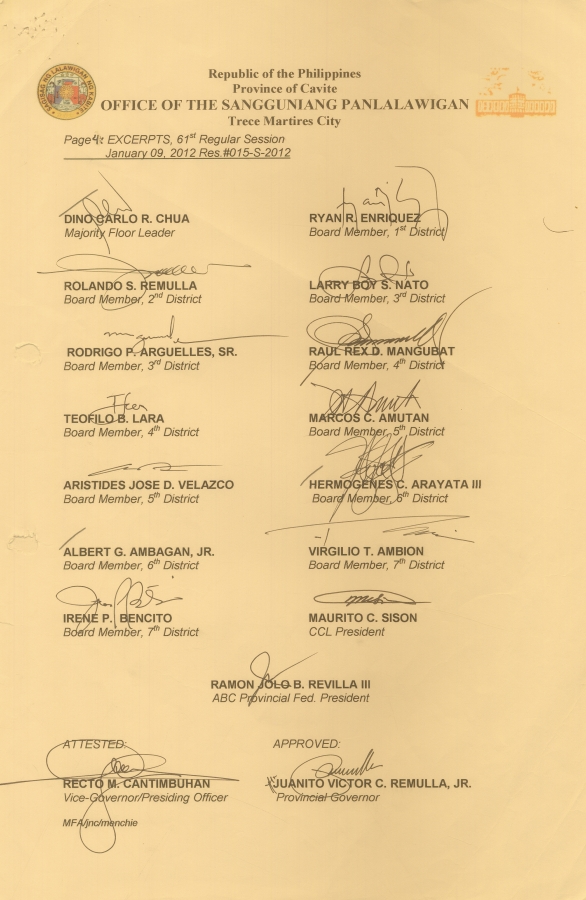 Republic of the Philippines
Province of Cavite
OFFICE OF THE SANGGUNIANG PANLALAWIGAN
Trece Martires City
Page 4: EXCERPTS, 61st Regular Session
January 09, 2012 Res.#015-S-2012
DINO CARLO R. CHUA
Majority Floor Leader
RYAN R. ENRIQUEZ
Board Member, 1st District
ROLANDO S. REMULLA
Board Member, 2nd District
LARRY BOY S. NATO
Board Member, 3rd District
RODRIGO P. ARGUELLES, SR.
Board Member, 3rd District
RAUL REX D. MANGUBAT
Board Member, 4th District
TEOFILO B. LARA
Board Member, 4th District
MARCOS C. AMUTAN
Board Member, 5th District
ARISTIDES JOSE D. VELAZCO
Board Member, 5th District
HERMOGENES C. ARAYATA III
Board Member, 6th District
ALBERT G. AMBAGAN, JR.
Board Member, 6th District
VIRGILIO T. AMBION
Board Member, 7th District
IRENE P. BENCITO
Board Member, 7th District
MAURITO C. SISON
CCL President
RAMON JOLO B. REVILLA III
ABC Provincial Fed. President
ATTESTED:
RECTO M. CANTIMBUHAN
Vice-Governor/Presiding Officer
APPROVED:
JUANITO VICTOR C. REMULLA, JR.
Provincial Governor
MFA/jnc/menchie